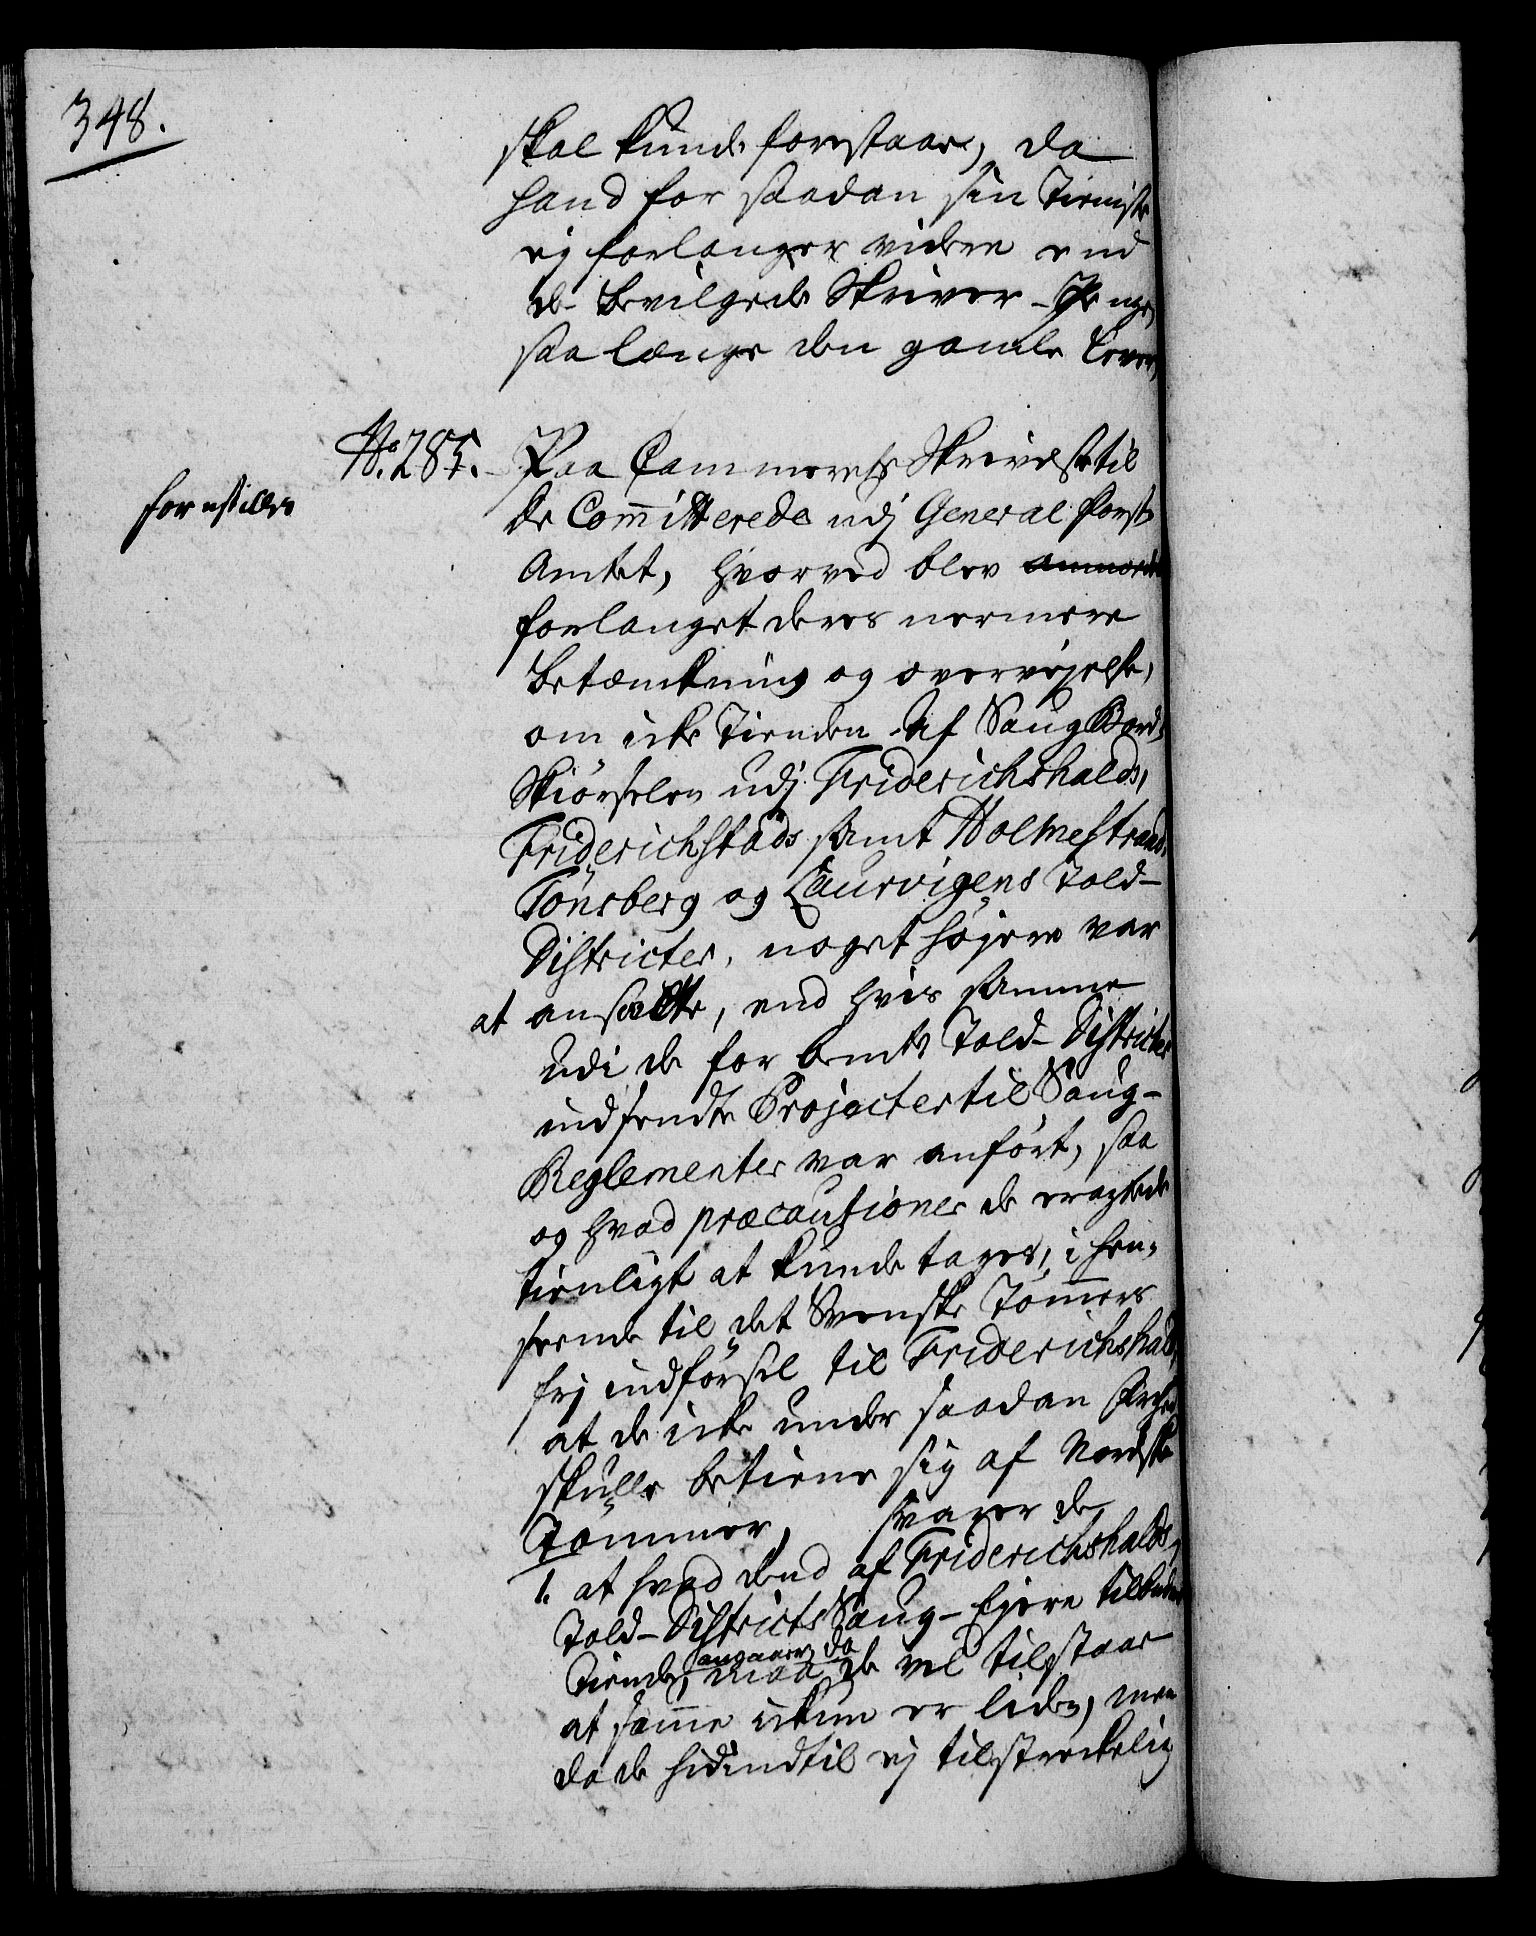 348.
skal kunde forestaae, da
hand for saadan sin Tieniste
ej forlanger videre end
de bevilgede Skriver-Penge,
saa længe den gamle lever,
No. 285. Paa Cammerets Skrivelse til
forestilles
de Committerede udj General Forst
Amtet, hvorved blev
forlanget deres nermere
betænkning og overvejelse,
om icke Tienden af Saug Bord,
Skiørselen udj Friderichshalds,
Friderichstads samt Holmestrands,
Tønsberg og Laurvigens Told-
Districter, noget højere var
at ansætte, end hvis samme
udi de for bemte Told-Districter
indsendte Projecter til Saug-
Reglementer var anført, saa
og hvad præcautioner de eragtede
tienligt at kunde tages, i hen,
seende til det Svenske Tømmers
frj indførsel til Friderichshald,
at de icke under saadan
skulle betiene sig af Nordsk
Tømmer, svarer de
1. at hvad dend af Friderichshalds
Told-Districts Saug-Ejere tilbudne
Tiende, angaaer, da
maa de vel tilstaae
at samme ickun er liden, men
da de hidindtil ej tilstreckelig